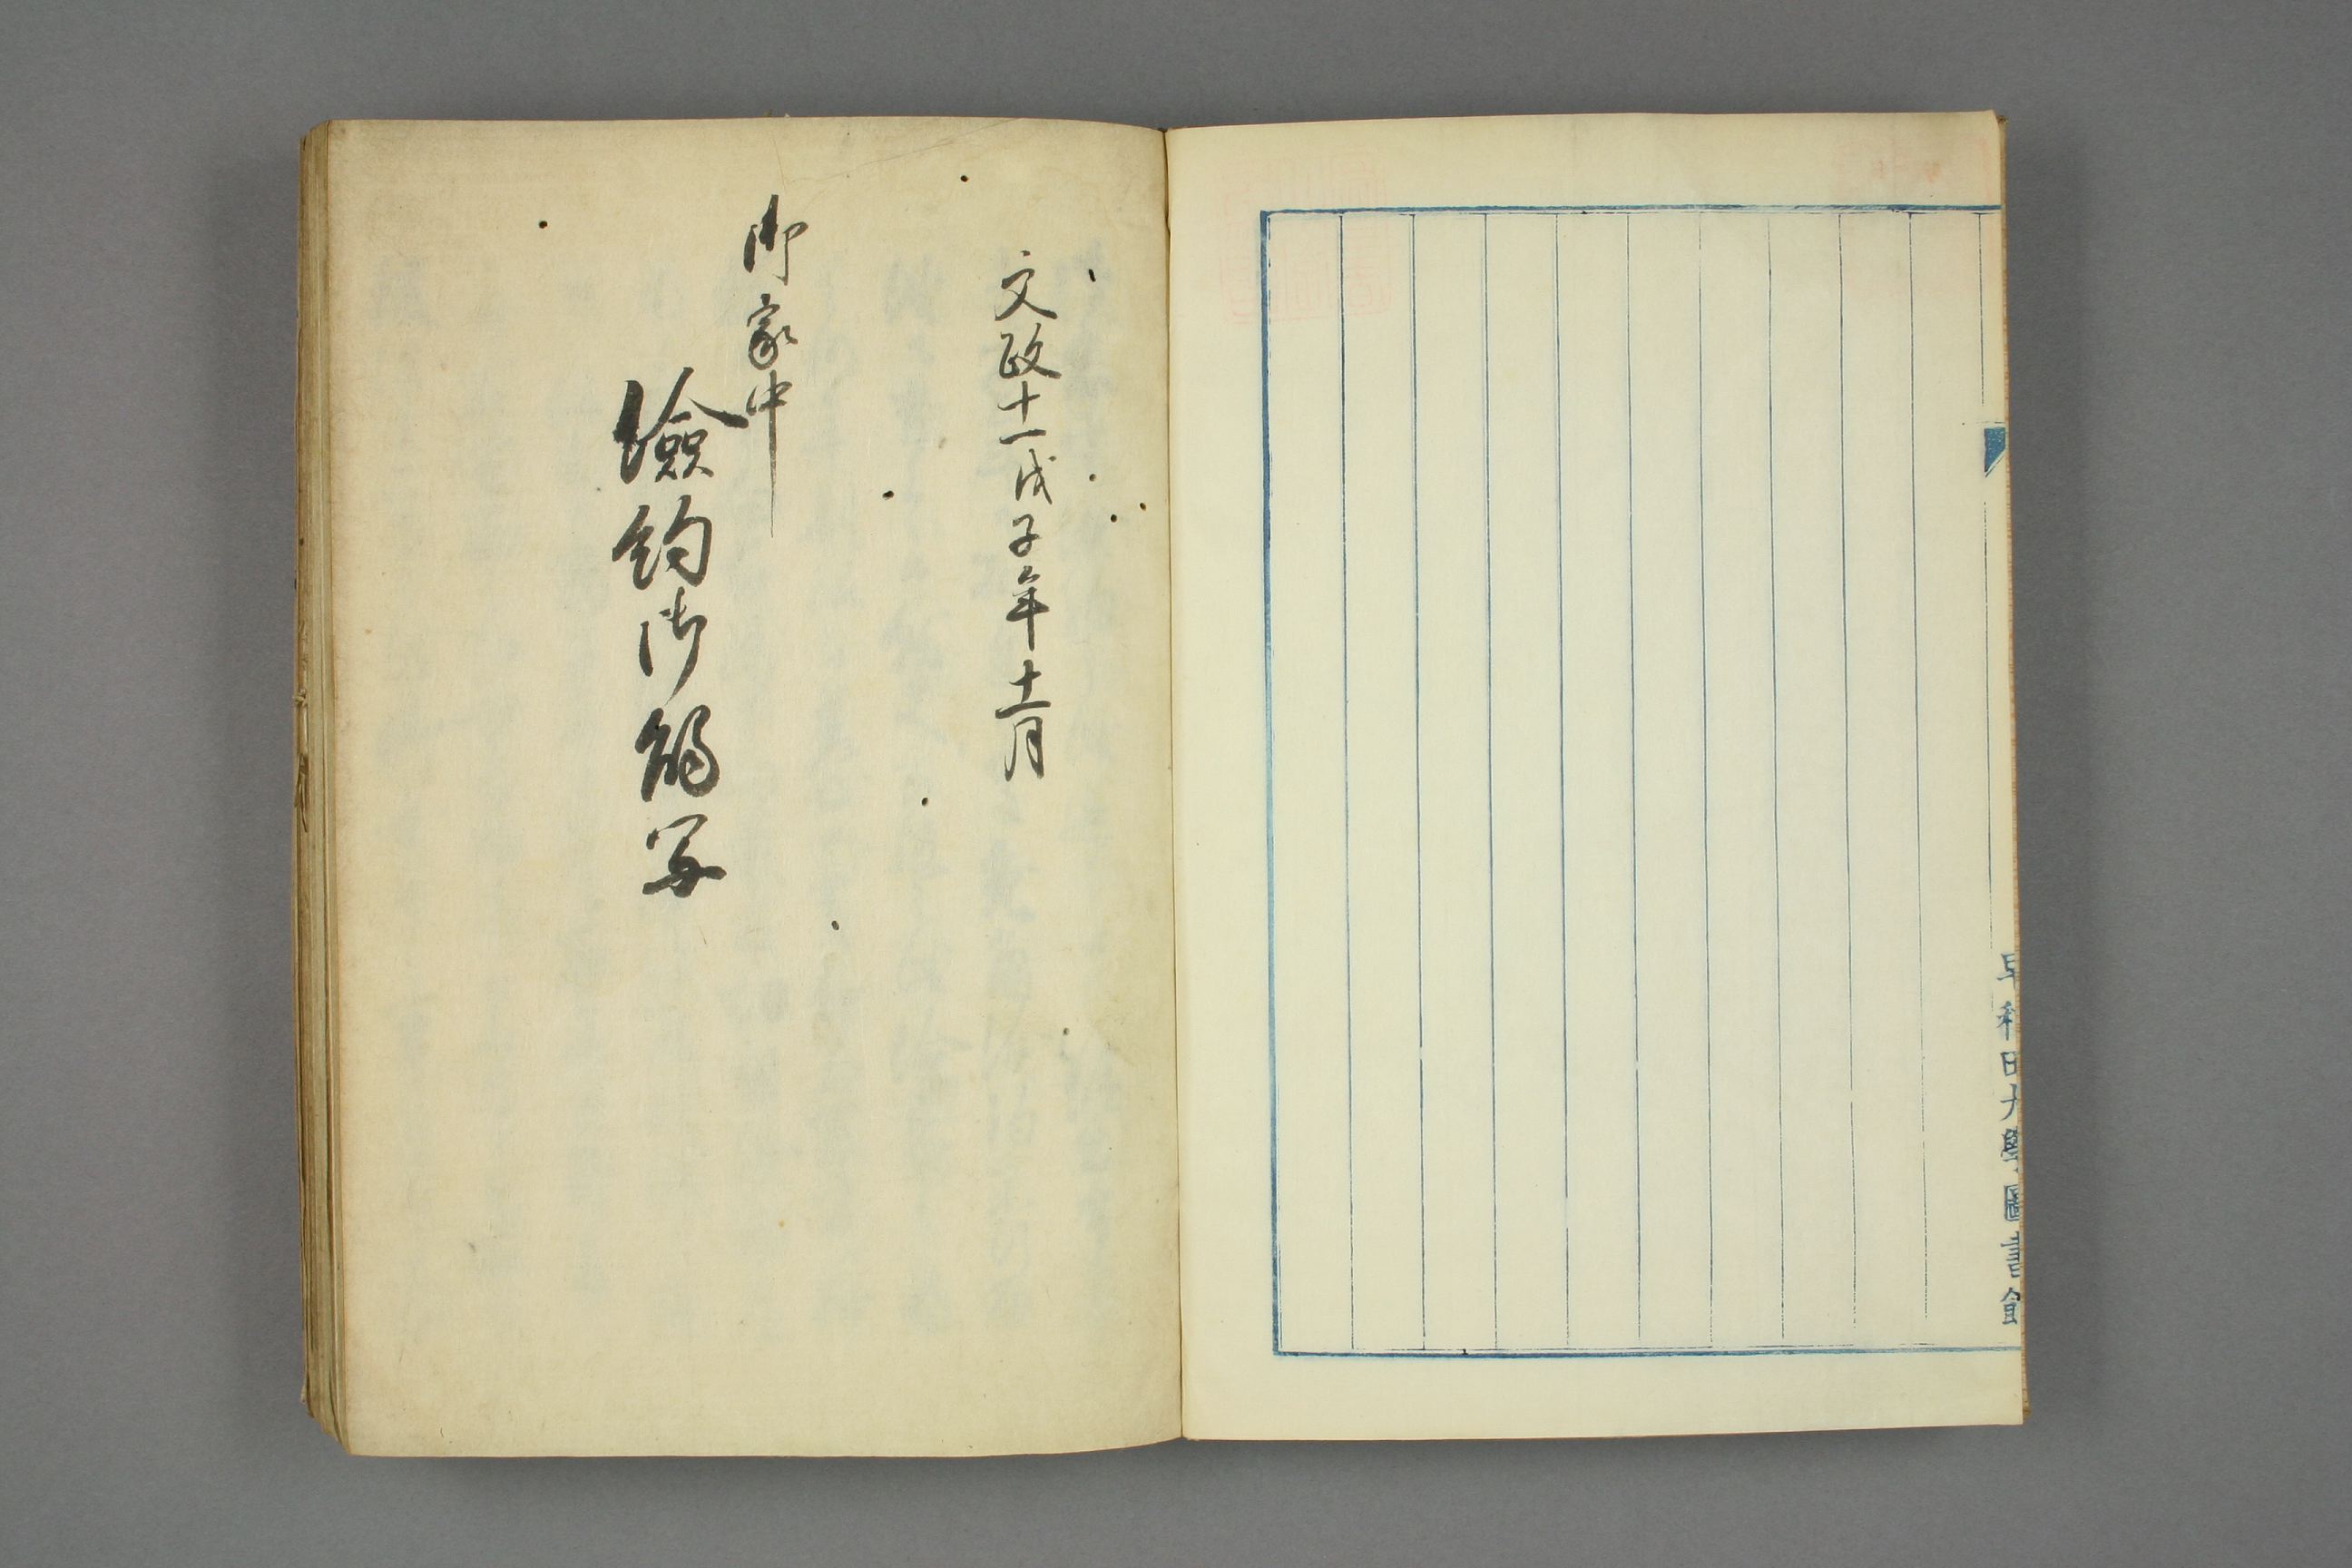 早稲田大學圖書館
文政十一戊子年十一月
御家中
儉約御觸写